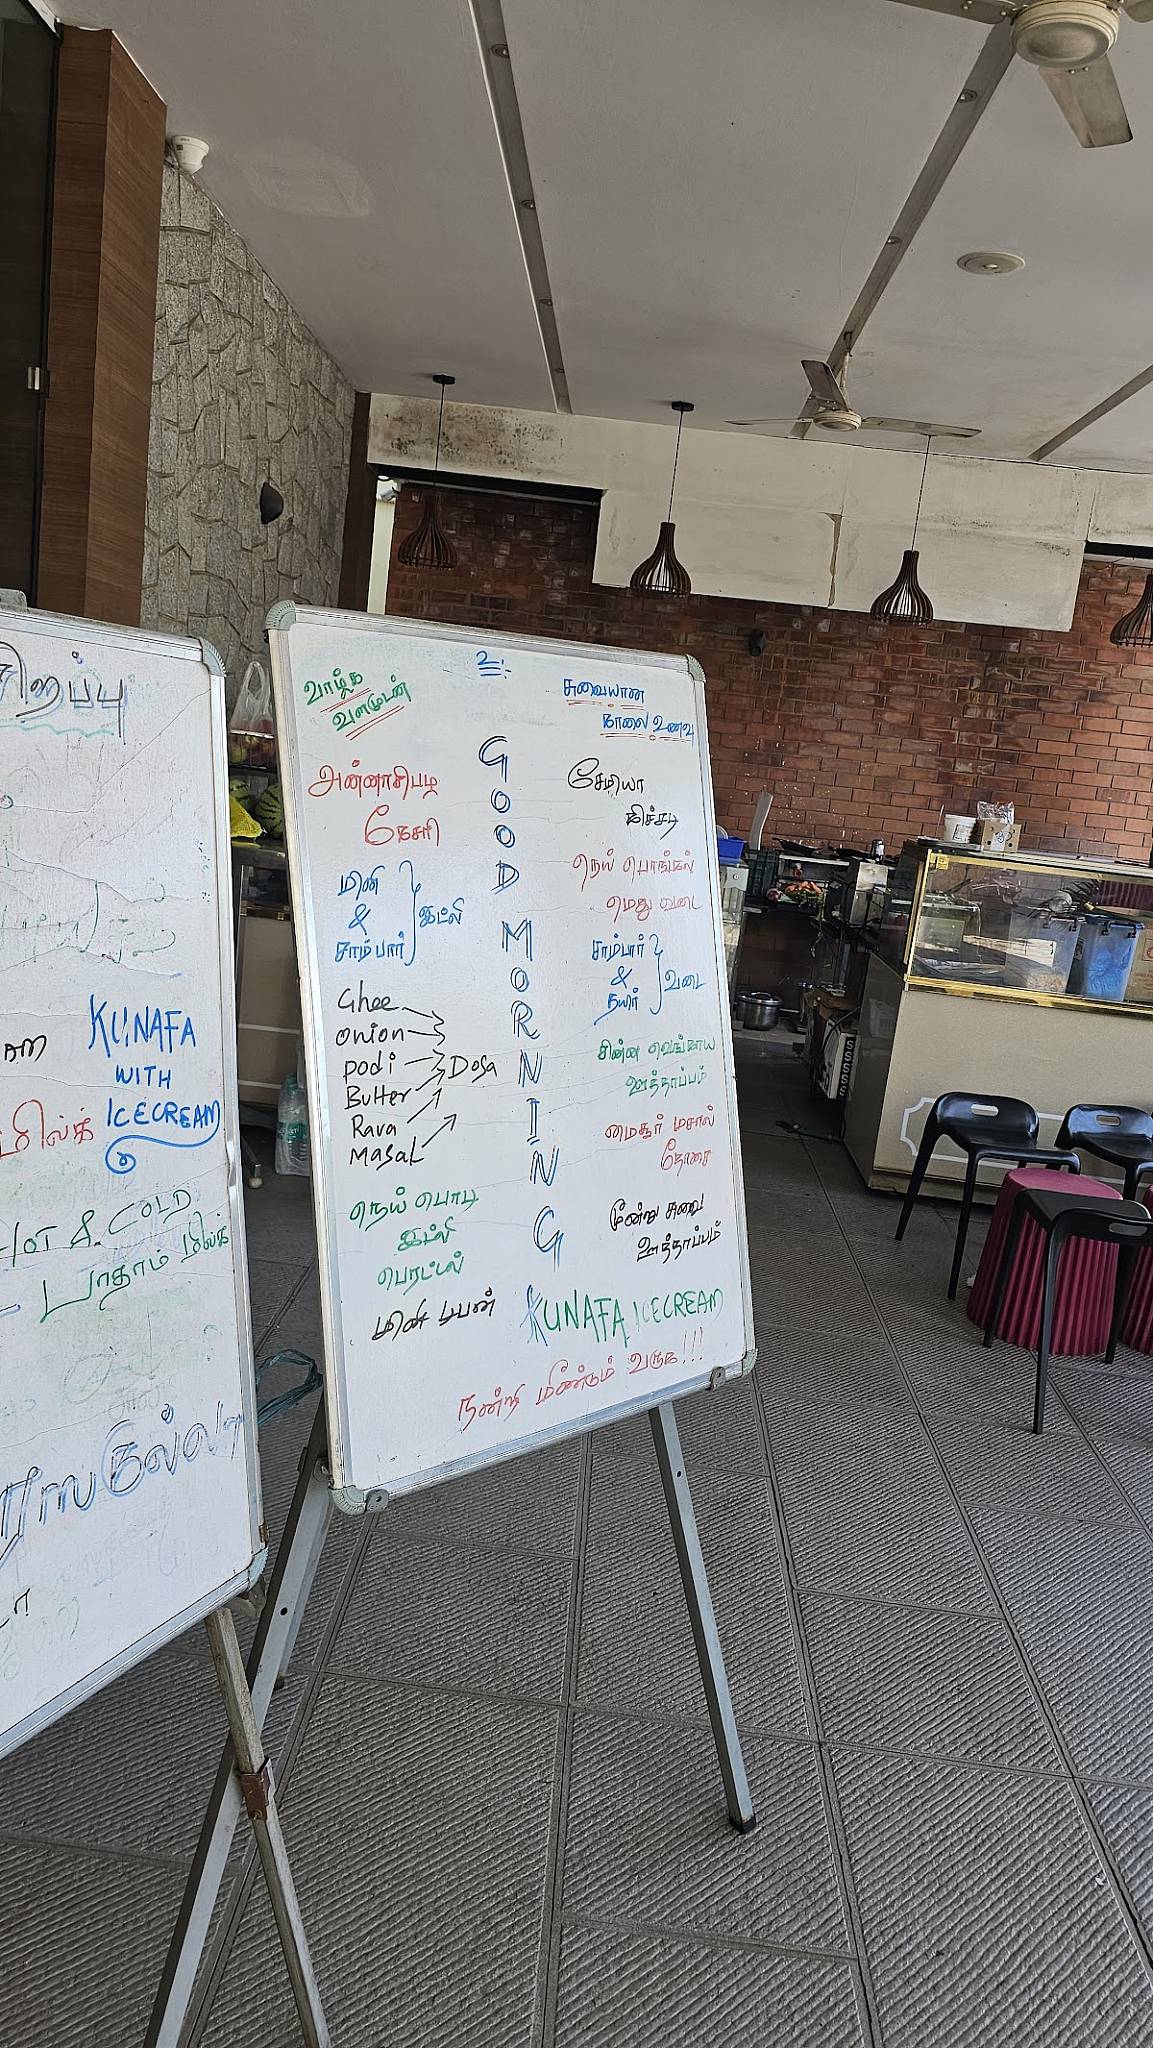 சிறப்பு
KUNAFA
WITH
ICECREAM
மில்க்
HOT & COLD
பாதாம் மில்க்
ரஸகுல்லா
உ
வாழ்க
வளமுடன்
சுவையான
காலை உணவு
GOOD MORNING
அன்னாசிபழ
கேசரி
மினி
&
சாம்பார்
இட்லி
Ghee
Onion
Podi
Butter
Rava
Masal
Dosa
நெய் பொடி
இட்லி
பெரட்டல்
மினி டிபன்
சேமியா
கிச்சடி
நெய் பொங்கல்
மெது வடை
சாம்பார்
&
தயிர்
வடை
சின்ன வெங்காய
ஊத்தாப்பம்
மைசூர் மசால்
தோசை
மூன்று சுவை
ஊத்தாப்பம்
KUNAFA ICECREAM
நன்றி மீண்டும் வருக!!!